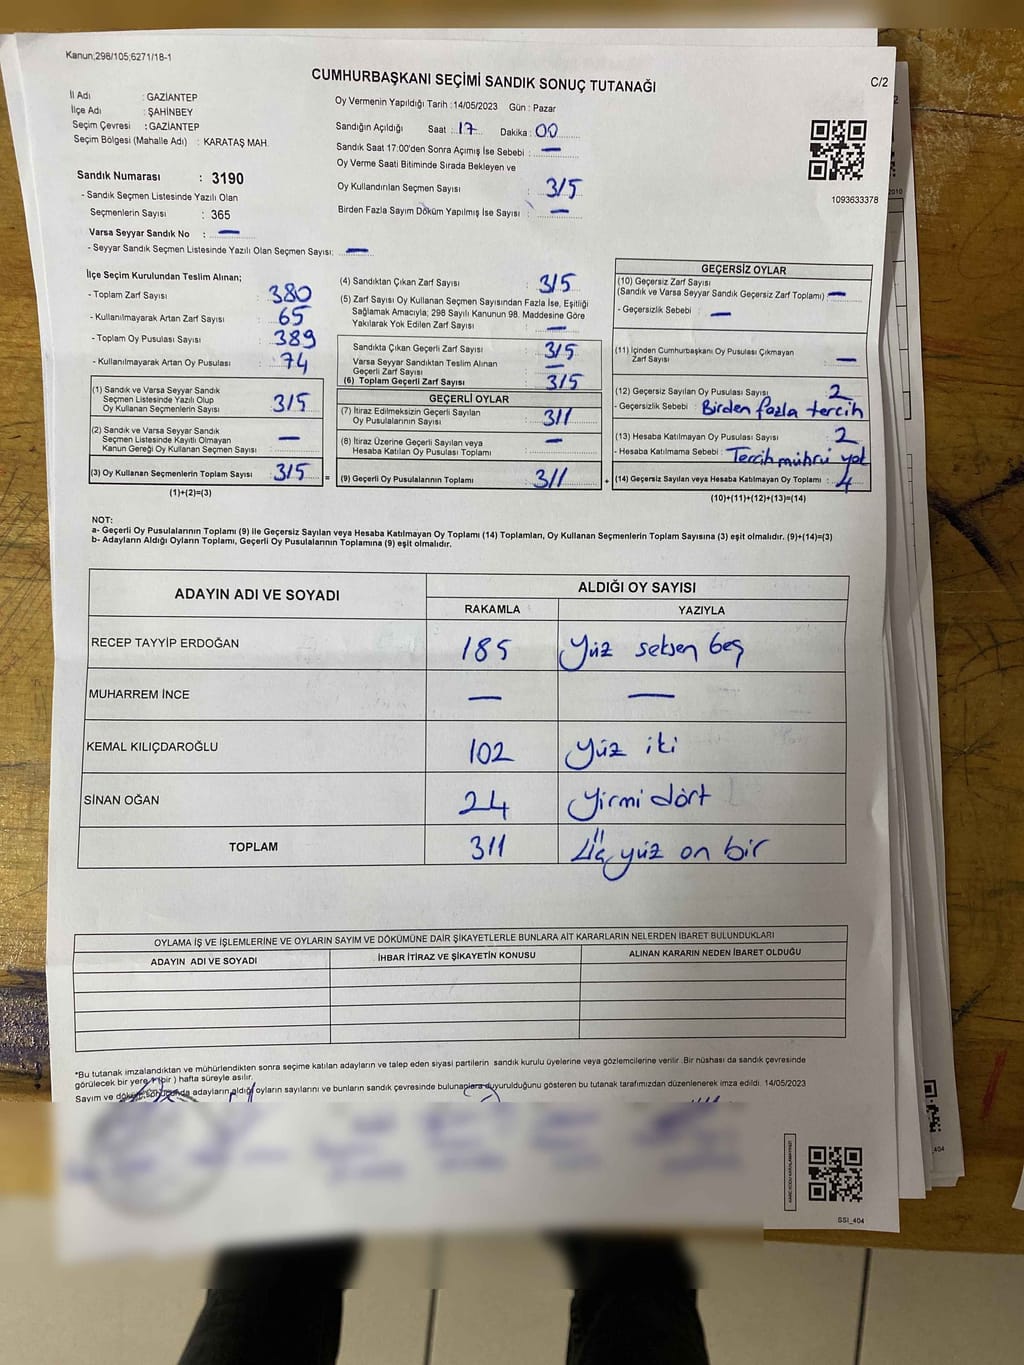 Kanun;298/105;6271/18-1
CUMHURBAŞKANI SEÇİMİ SANDIK SONUÇ TUTANAĞI
C/2
İl Adı : GAZİANTEP
İlçe Adı : ŞAHİNBEY
Seçim Çevresi : GAZİANTEP
Seçim Bölgesi (Mahalle Adı) : KARATAŞ MAH.
Sandık Numarası : 3190
- Sandık Seçmen Listesinde Yazılı Olan
Seçmenlerin Sayısı : 365
Varsa Seyyar Sandık No : —
- Seyyar Sandık Seçmen Listesinde Yazılı Olan Seçmen Sayısı; —
Oy Vermenin Yapıldığı Tarih : 14/05/2023 Gün : Pazar
Sandığın Açıldığı Saat : 17 Dakika : 00
Sandık Saat 17:00'den Sonra Açımış İse Sebebi : —
Oy Verme Saati Bitiminde Sırada Bekleyen ve
Oy Kullandırılan Seçmen Sayısı : 315
Birden Fazla Sayım Döküm Yapılmış İse Sayısı : —
1093633378
İlçe Seçim Kurulundan Teslim Alınan;
- Toplam Zarf Sayısı : 380
- Kullanılmayarak Artan Zarf Sayısı : 65
- Toplam Oy Pusulası Sayısı : 389
- Kullanılmayarak Artan Oy Pusulası : 74
(1) Sandık ve Varsa Seyyar Sandık
Seçmen Listesinde Yazılı Olup
Oy Kullanan Seçmenlerin Sayısı : 315
(2) Sandık ve Varsa Seyyar Sandık
Seçmen Listesinde Kayıtlı Olmayan
Kanun Gereği Oy Kullanan Seçmen Sayısı : —
(3) Oy Kullanan Seçmenlerin Toplam Sayısı : 315
(1)+(2)=(3)
(4) Sandıktan Çıkan Zarf Sayısı : 315
(5) Zarf Sayısı Oy Kullanan Seçmen Sayısından Fazla İse, Eşitliği
Sağlamak Amacıyla; 298 Sayılı Kanunun 98. Maddesine Göre
Yakılarak Yok Edilen Zarf Sayısı : —
Sandıkta Çıkan Geçerli Zarf Sayısı : 315
Varsa Seyyar Sandıktan Teslim Alınan
Geçerli Zarf Sayısı : —
(6) Toplam Geçerli Zarf Sayısı : 315
GEÇERLİ OYLAR
(7) İtiraz Edilmeksizin Geçerli Sayılan
Oy Pusulalarının Sayısı : 311
(8) İtiraz Üzerine Geçerli Sayılan veya
Hesaba Katılan Oy Pusulası Toplamı : —
= (9) Geçerli Oy Pusulalarının Toplamı : 311
GEÇERSİZ OYLAR
(10) Geçersiz Zarf Sayısı
(Sandık ve Varsa Seyyar Sandık Geçersiz Zarf Toplamı) : —
- Geçersizlik Sebebi : —
(11) İçinden Cumhurbaşkanı Oy Pusulası Çıkmayan
Zarf Sayısı : —
(12) Geçersiz Sayılan Oy Pusulası Sayısı : 2
- Geçersizlik Sebebi : Birden fazla tercih
(13) Hesaba Katılmayan Oy Pusulası Sayısı : 2
- Hesaba Katılmama Sebebi : Tercih mührü yok
+ (14) Geçersiz Sayılan veya Hesaba Katılmayan Oy Toplamı : 4
(10)+(11)+(12)+(13)=(14)
NOT:
a- Geçerli Oy Pusulalarının Toplamı (9) ile Geçersiz Sayılan veya Hesaba Katılmayan Oy Toplamı (14) Toplamları, Oy Kullanan Seçmenlerin Toplam Sayısına (3) eşit olmalıdır. (9)+(14)=(3)
b- Adayların Aldığı Oyların Toplamı, Geçerli Oy Pusulalarının Toplamına (9) eşit olmalıdır.
ADAYIN ADI VE SOYADI
ALDIĞI OY SAYISI
RAKAMLA YAZIYLA
RECEP TAYYİP ERDOĞAN 185 Yüz seksen beş
MUHARREM İNCE — —
KEMAL KILIÇDAROĞLU 102 Yüz iki
SİNAN OĞAN 24 Yirmi dört
TOPLAM 311 Üç yüz on bir
OYLAMA İŞ VE İŞLEMLERİNE VE OYLARIN SAYIM VE DÖKÜMÜNE DAİR ŞİKAYETLERLE BUNLARA AİT KARARLARIN NELERDEN İBARET BULUNDUKLARI
ADAYIN ADI VE SOYADI İHBAR İTİRAZ VE ŞİKAYETİN KONUSU ALINAN KARARIN NEDEN İBARET OLDUĞU
*Bu tutanak imzalandıktan ve mühürlendikten sonra seçime katılan adayların ve talep eden siyasi partilerin sandık kurulu üyelerine veya gözlemcilerine verilir. Bir nüshası da sandık çevresinde
görülecek bir yere 1 (bir) hafta süreyle asılır.
Sayım ve döküm sonucunda adayların aldığı oyların sayılarını ve bunların sandık çevresinde bulunanlara duyurulduğunu gösteren bu tutanak tarafımızdan düzenlenerek imza edildi. 14/05/2023
SSI_404